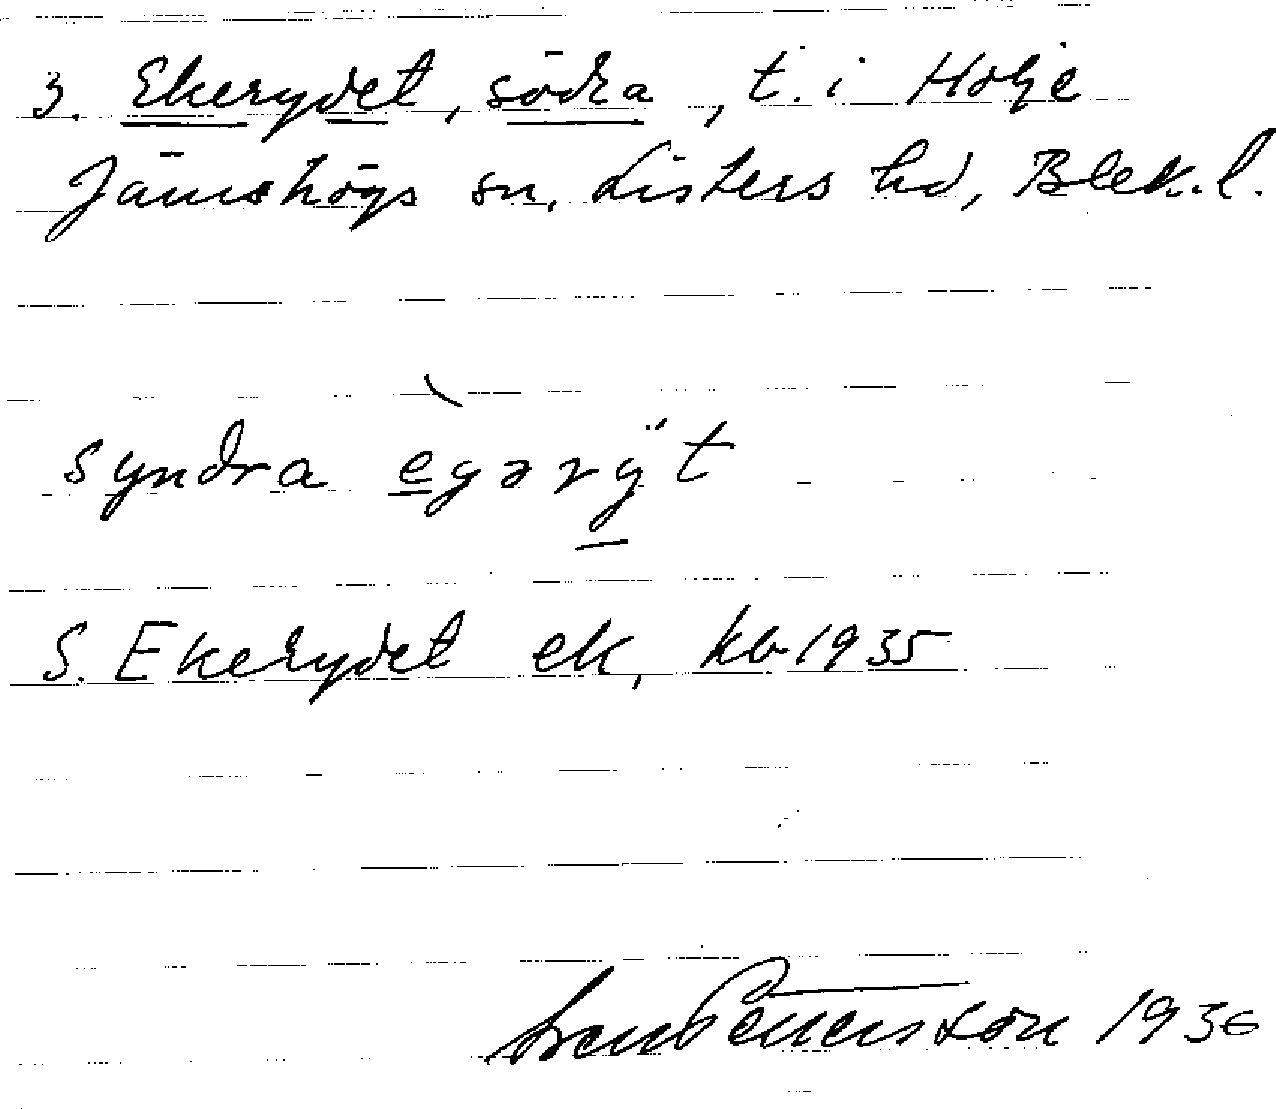 3. Ekerydet, södra, t. i Holje
Jämshögs sn, Listers hd, Blek. l.
syndra egərÿt
S. Ekerydet ek, kb 1935
Sven Pettersson 1936